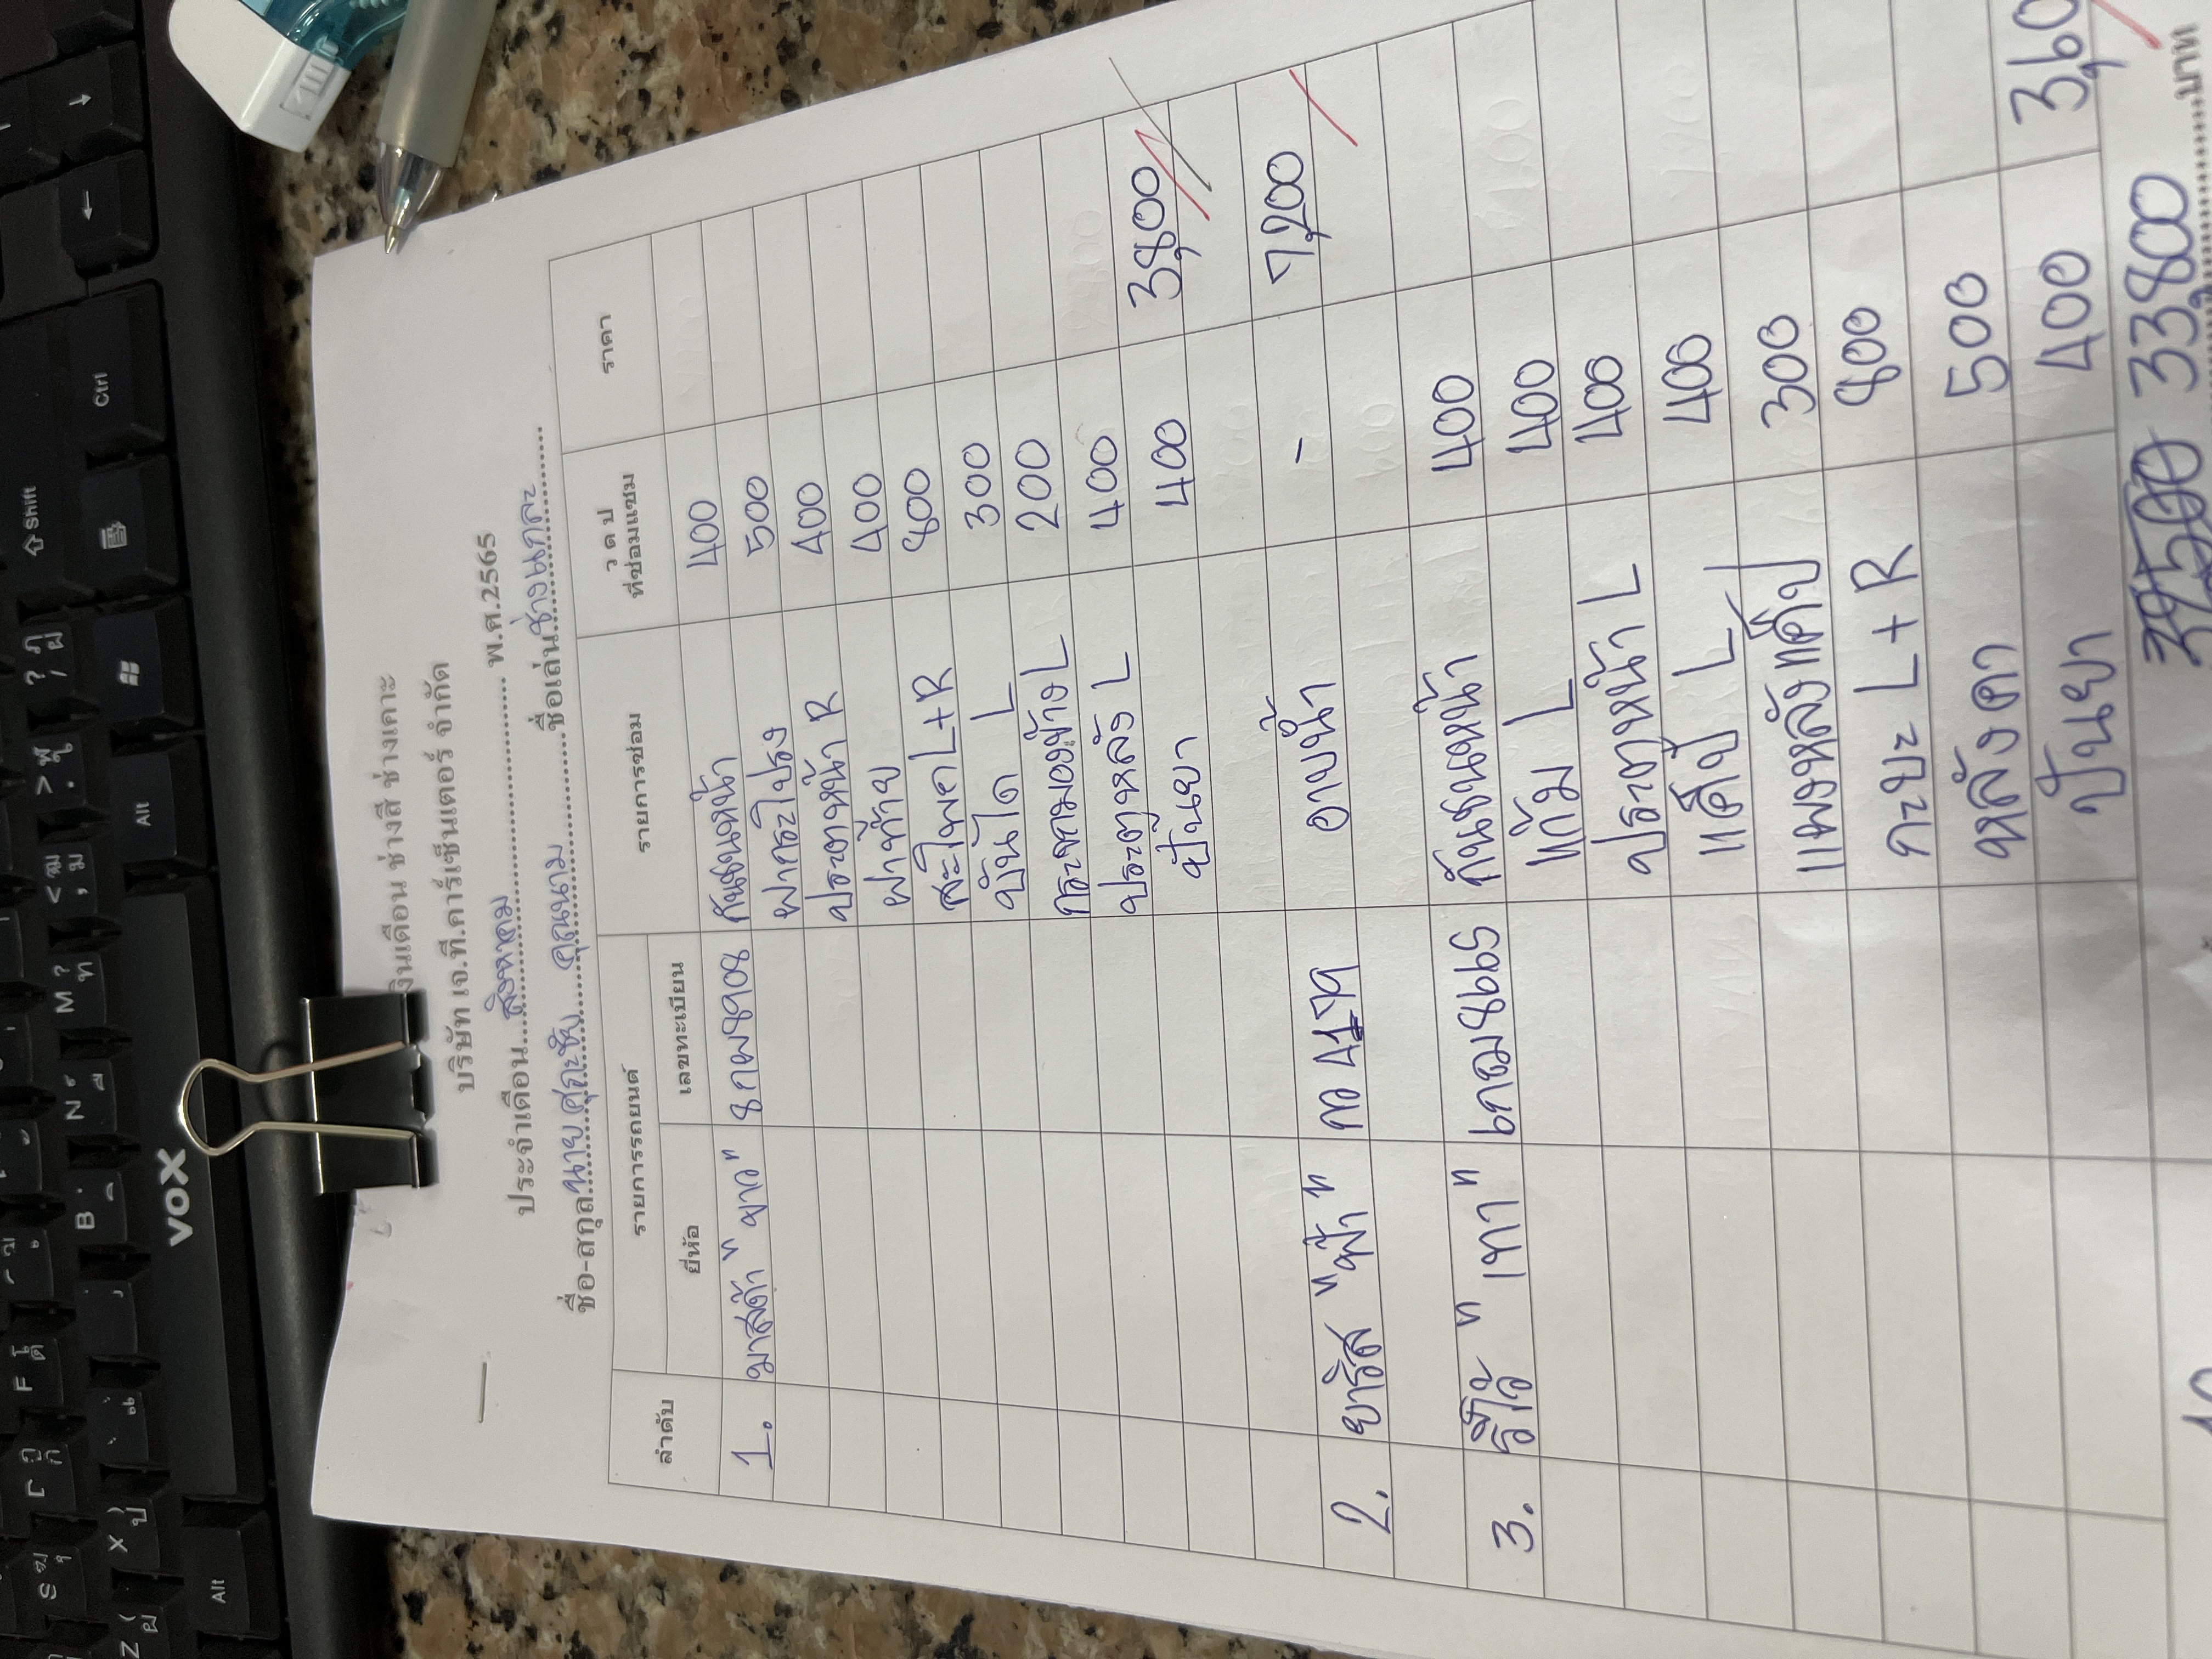 เงินเดือน ช่างสี ช่างเคาะ
บริษัท เจ.ที.คาร์เซ็นเตอร์ จำกัด
ประจำเดือน....สิงหาคม.... พ.ศ.2565
ชื่อ-สกุล....นาย คุณนาม....ชื่อเล่น....ช่างแกละ....
ลำดับ รายการรถยนต์ รายการซ่อม ว ด ป ที่ซ่อมแซม ราคา
ยี่ห้อ เลขทะเบียน
1. มาสด้า "ขาว" 8กผ8908 กันชนหน้า 400
ฝากระโปรง 500
ประตูหน้า R 400
ฝาท้าย 400
สะโพก L+R 800
บันได L 300
กระจกมองข้าง L 200
ประตูหลัง L 400
ปั่นยา 400 3,800
2. ยาริส "ฟ้า" กอ 4179 อาบน้ำ - 7,200
3. รีโว่ "เทา" 8665 กันชนหน้า 400
แก้ม L 400
ประตูหน้า L 400
แค็ป L 400
แผงหลังแค็ป 300
กะบะ L+R 800
หลังคา 500
ปั่นยา 400 3,60
33,800 บาท
VOX
Shift
Ctrl
Alt
Alt